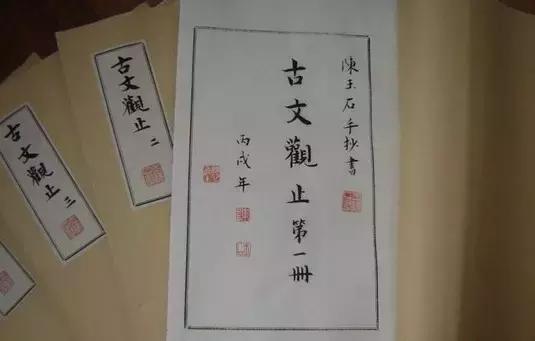 陳玉石手抄書
古文觀止第一冊
丙戌年
古文觀止 二
古文觀止 三